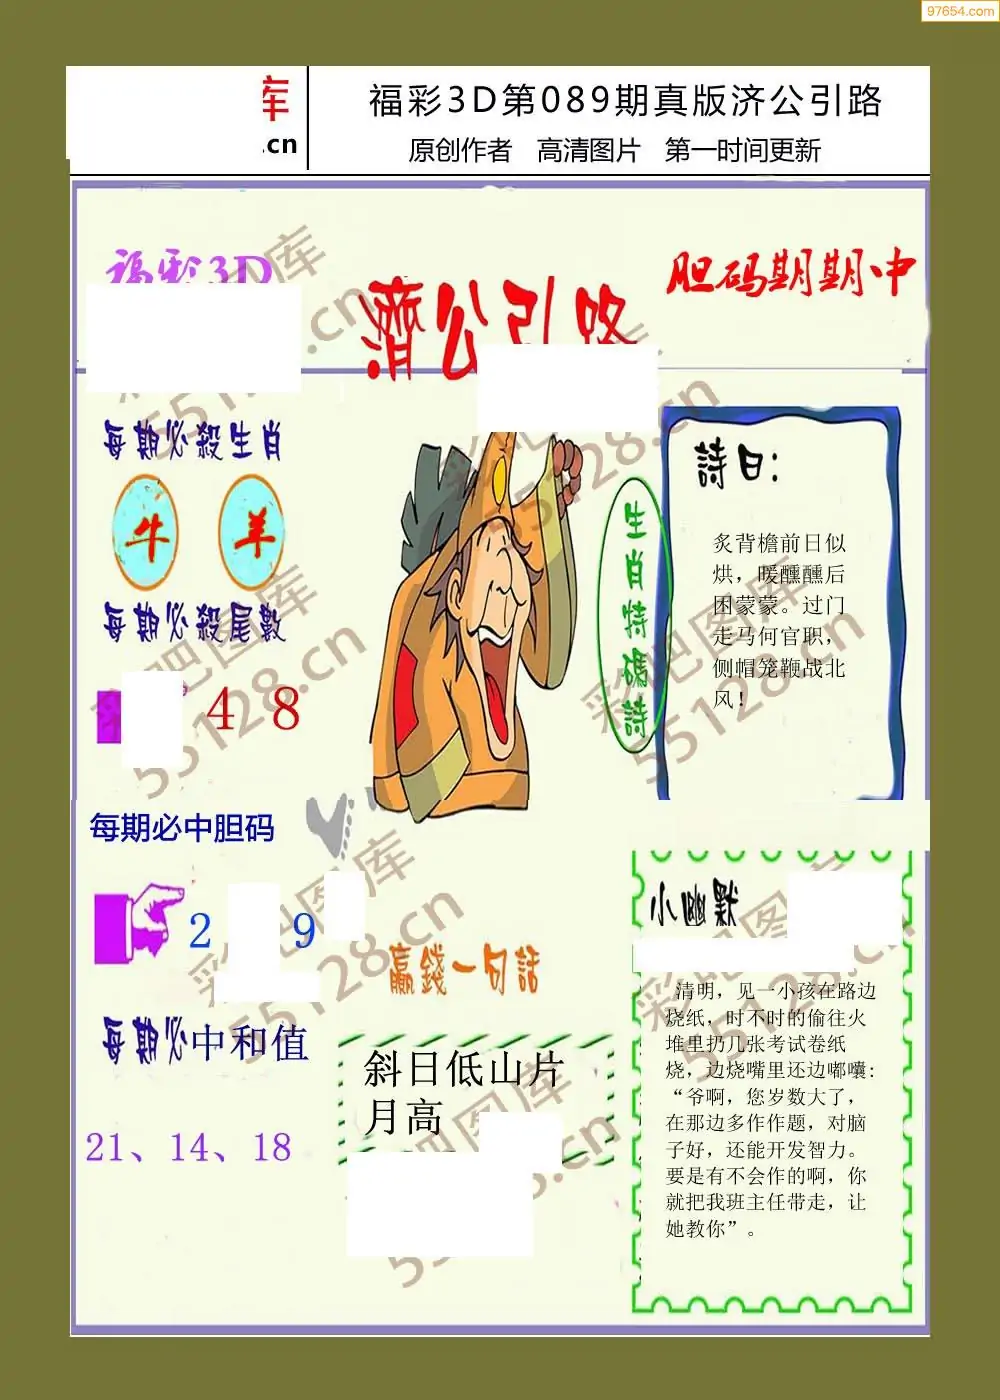 97654.com
库
.cn
福彩3D第089期真版济公引路
原创作者 高清图片 第一时间更新
福彩3D
濟公引路
胆码期期中
每期必殺生肖
牛 羊
每期必殺尾數
4 8
每期必中胆码
2 9
每期必中和值
21、14、18
生肖特碼詩
詩曰:
炙背檐前日似
烘，暖醺醺后
困蒙蒙。过门
走马何官职，
侧帽笼鞭战北
风！
赢錢一句話
斜日低山片
月高
小幽默
清明，见一小孩在路边
烧纸，时不时的偷往火
堆里扔几张考试卷纸
烧，边烧嘴里还边嘟囔:
“爷啊，您岁数大了，
在那边多作作题，对脑
子好，还能开发智力。
要是有不会作的啊，你
就把我班主任带走，让
她教你”。
彩吧图库
55128.cn
彩吧图库
55128.cn
彩吧图库
55128.cn
彩吧图库
55128.cn
彩吧图库
55128.cn
彩吧图库
55128.cn